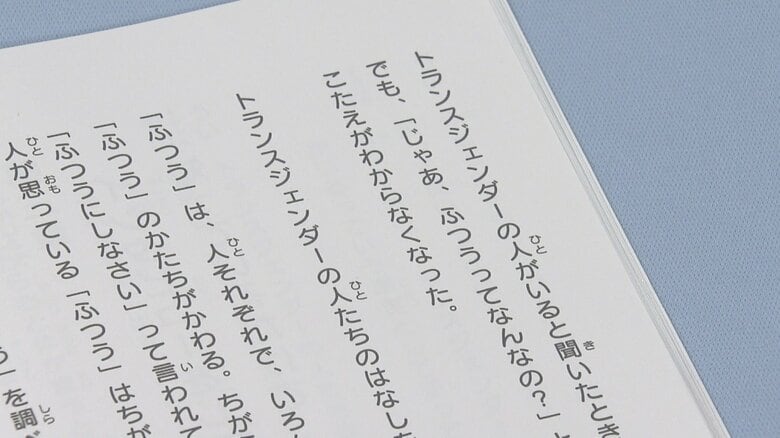 トランスジェンダーの人がいると聞いたとき
でも、「じゃあ、ふつうってなんなの？」と
こたえがわからなくなった。
トランスジェンダーの人たちのはなしを
「ふつう」は、人それぞれで、いろ
「ふつう」のかたちがかわる。ちが
「ふつうにしなさい」って言われて
人が思っている「ふつう」はちが
」を調